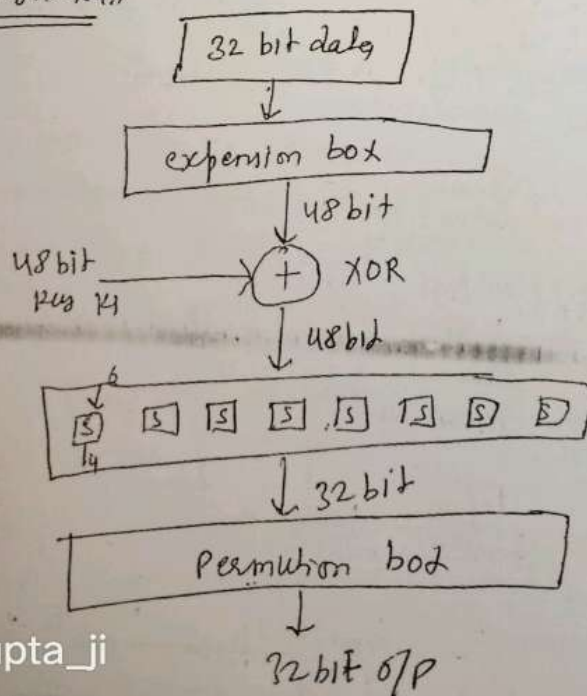 32 bit data
expension box
48 bit
48 bit
key K1
+ XOR
48 bit
6
S S S S S S S S
4
32 bit
Permution box
32 bit o/p
pta_ji